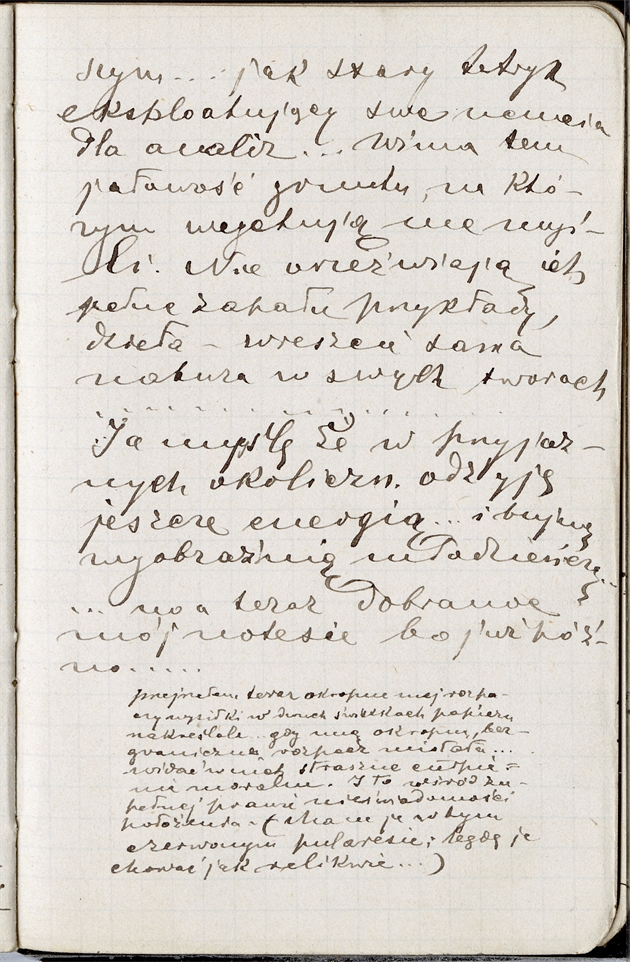 nym.... jak stary tetryk
eksploatujący swe
dla analiz... Winna tem
jałowość gruntu, na któ-
rym wegetują me myś-
li. Nie orzeźwiają ich
pełne zapału przykłady,
dzieła - wreszcie sama
natura w swych tworach
. . . . . . . . . . . .
Ja myślę że w przyjaz-
nych okoliczn. odżyję
jeszcze energią... i bujną
wyobraźnią młodzieńczą...
... no a teraz dobranoc
mój notesie bo już póź-
no.....
przejrzałem teraz okropne mej rozpa-
czy wysiłki w dwuch świstkach papieru
nakreślone... gdy mną okropna, bez-
graniczna rozpacz miotała...
widać w nich straszne cierpie=
nie moralne. I to wśród zu-
pełnej prawie nieświadomości
położenia - (mam je w tym
czerwonym pularesie; będę je
chować jak relikwie...)